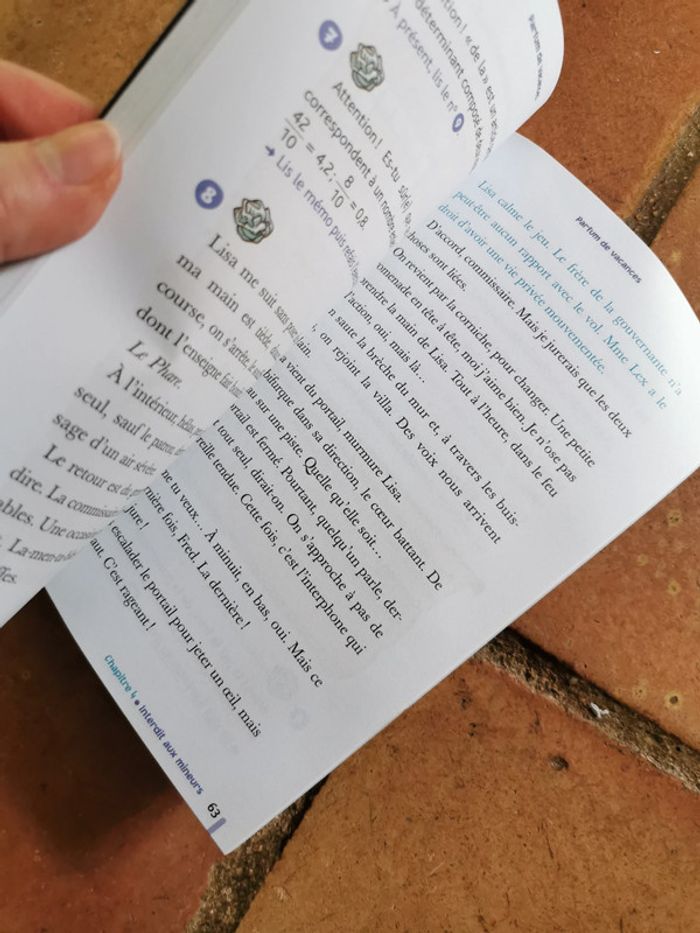 Parfum de vacances
tion ! « de la » est un
déterminant composé de
À présent, lis le n° 9.
7
Attention ! Es-tu sûr(e)
correspondent à un nombre
42/10 = 4,2 ; 8/10 = 0,8.
→ Lis le mémo puis
8
Lisa me suit sans
ma main est tiède,
course, on s'arrête,
dont l'enseigne fait
Le Phare.
À l'intérieur,
seul, sauf le patron
sage d'un air
Le retour est
dire. La commissaire
ables. Une
La-men-
ffles.
Parfum de vacances
Lisa calme le jeu. Le frère de la gouvernante n'a
peut-être aucun rapport avec le vol. Mme Lex a le
droit d'avoir une vie privée mouvementée.
D'accord, commissaire. Mais je jurerais que les deux
choses sont liées.
On revient par la corniche, pour changer. Une petite
omenade en tête à tête, moi j'aime bien. Je n'ose pas
rendre la main de Lisa. Tout à l'heure, dans le feu
l'action, oui, mais là…
n saute la brèche du mur et, à travers les buis-
, on rejoint la villa. Des voix nous arrivent
ain.
a vient du portail, murmure Lisa.
bifurque dans sa direction, le cœur battant. De
au sur une piste. Quelle qu'elle soit…
rtail est fermé. Pourtant, quelqu'un parle, der-
t tout seul, dirait-on. On s'approche à pas de
reille tendue. Cette fois, c'est l'interphone qui
ne tu veux… À minuit, en bas, oui. Mais ce
nière fois, Fred. La dernière !
jure !
escalader le portail pour jeter un œil, mais
aut. C'est rageant !
Chapitre 4 • Interdit aux mineurs
63